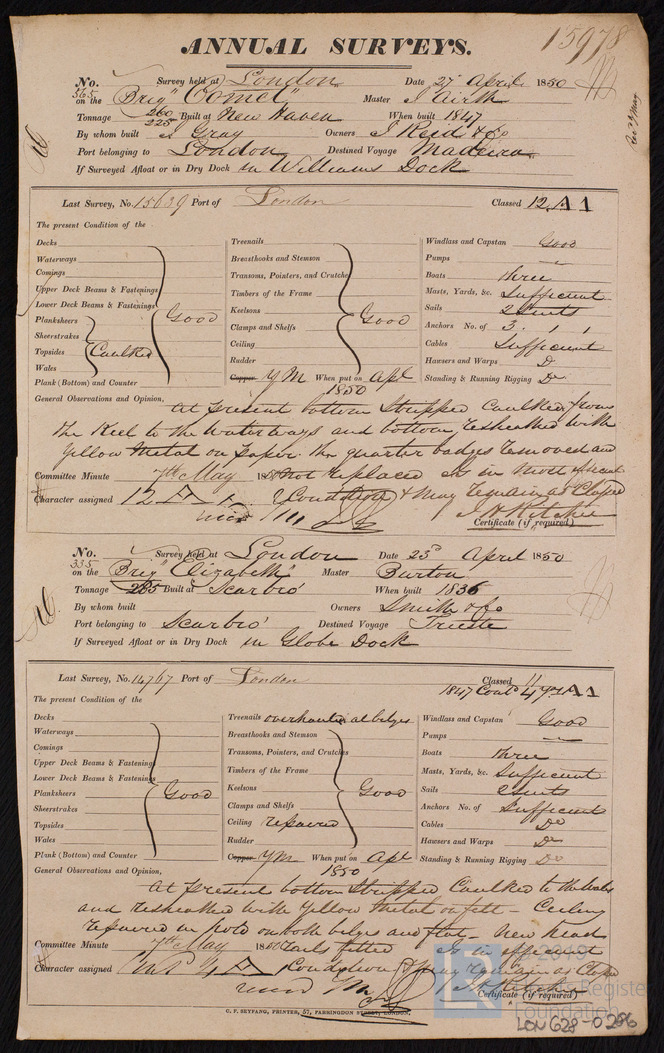 ANNUAL SURVEYS.
15978
No. 565 Survey held at London Date 23 April 1850
on the Brig "Comet" Master J Airth
Tonnage 260 225 Built at New Haven When built 1847
By whom built J Gray Owners J Reid & Co
Port belonging to London Destined Voyage Madeira
If Surveyed Afloat or in Dry Dock in Williams Dock
Last Survey, No. 15639 Port of London Classed 12 A 1
The present Condition of the
Decks
Waterways
Comings
Upper Deck Beams & Fastenings
Lower Deck Beams & Fastenings
Planksheers
Sheerstrakes
Topsides Caulked
Wales
Plank (Bottom) and Counter
Good
Treenails
Breasthooks and Stemson
Transoms, Pointers, and Crutches
Timbers of the Frame
Keelsons
Clamps and Shelfs
Ceiling
Rudder
Good
Copper YM When put on Apl 1850
Windlass and Capstan Good
Pumps
Boats three
Masts, Yards, &c. Sufficient
Sails 2 Suits
Anchors No. of 3. 1, 1
Cables Sufficient
Hawsers and Warps Do
Standing & Running Rigging Do
General Observations and Opinion, At present bottom Stripped Caulked from
the Keel to the Waterways and bottom resheathed with
Yellow Metal on paper the quarter badges removed and
not replaced Is in Most efficient
Committee Minute 7th May 1850
Condition & may remain as Classed
Character assigned 12 A 1
J H Ritchie
Certificate (if required)
No. 335 Survey held at London Date 23d April 1850
on the Brig "Elizabeth" Master Burton
Tonnage 235 Built at Scarbro' When built 1836
By whom built Owners Smith & Co
Port belonging to Scarbro' Destined Voyage Trieste
If Surveyed Afloat or in Dry Dock in Globe Dock
Last Survey, No. 14767 Port of London Classed 11
1847 Cont 4 A 1
The present Condition of the
Decks
Waterways
Comings
Upper Deck Beams & Fastenings
Lower Deck Beams & Fastenings
Planksheers
Sheerstrakes
Topsides
Wales
Plank (Bottom) and Counter
Good
Treenails overhauled at bilges
Breasthooks and Stemson
Transoms, Pointers, and Crutches
Timbers of the Frame
Keelsons
Clamps and Shelfs
Ceiling repaired
Rudder
Good
Copper YM When put on Apl 1850
Windlass and Capstan Good
Pumps
Boats three
Masts, Yards, &c. Sufficient
Sails 2 suits
Anchors No. of Sufficient
Cables Do
Hawsers and Warps Do
Standing & Running Rigging Do
General Observations and Opinion,
At present bottom Stripped Caulked to the Wales
and resheathed with Yellow Metal on felt - Ceiling
repaired in hold on both bilges and flat - New head
rails fitted Is in efficient
Committee Minute 7th May 1850
Condition & may remain as Classed
Character assigned
J H Ritchie
Certificate (if required)
C. F. SEYFANG, PRINTER, 57, FARRINGDON STREET, LONDON.
© 2019
Lloyd's Register
Foundation
LON 628-0286